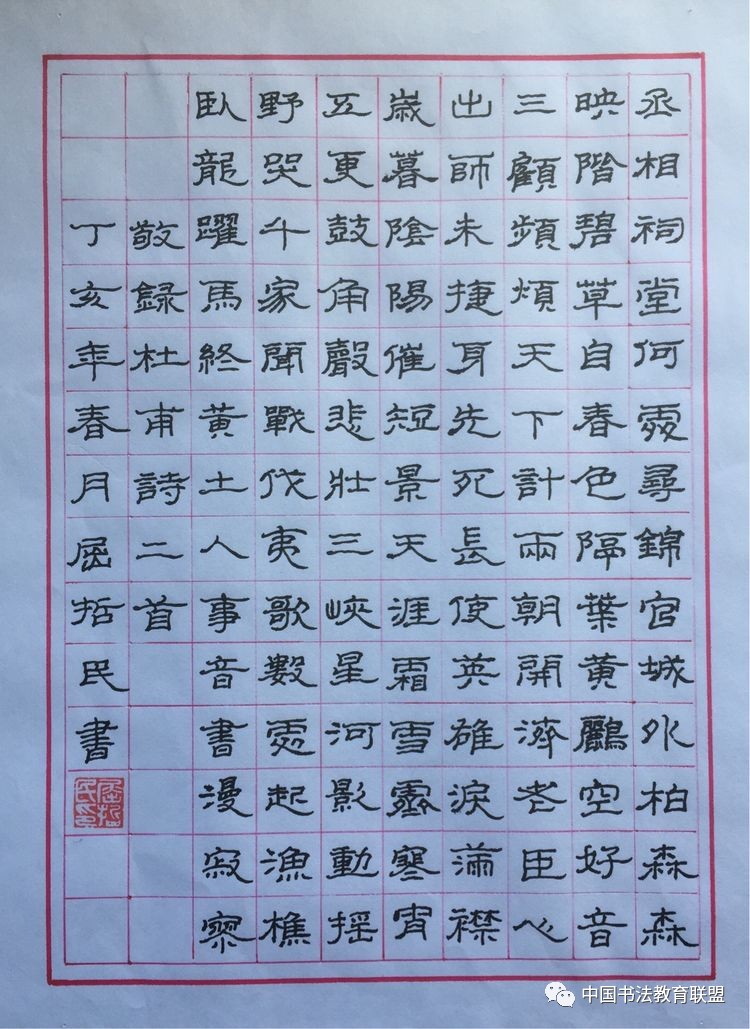 丞相祠堂何處尋錦官城外柏森森
映階碧草自春色隔葉黄鸝空好音
三顧頻煩天下計兩朝開濟老臣心
出師未捷身先死長使英雄淚滿襟
歲暮陰陽催短景天涯霜雪霽寒宵
五更鼓角聲悲壯三峽星河影動摇
野哭千家聞戰伐夷歌數處起漁樵
臥龍躍馬終黄土人事音書漫寂寥
敬録杜甫詩二首
丁亥年春月屈哲民書
屈哲民印
中国书法教育联盟